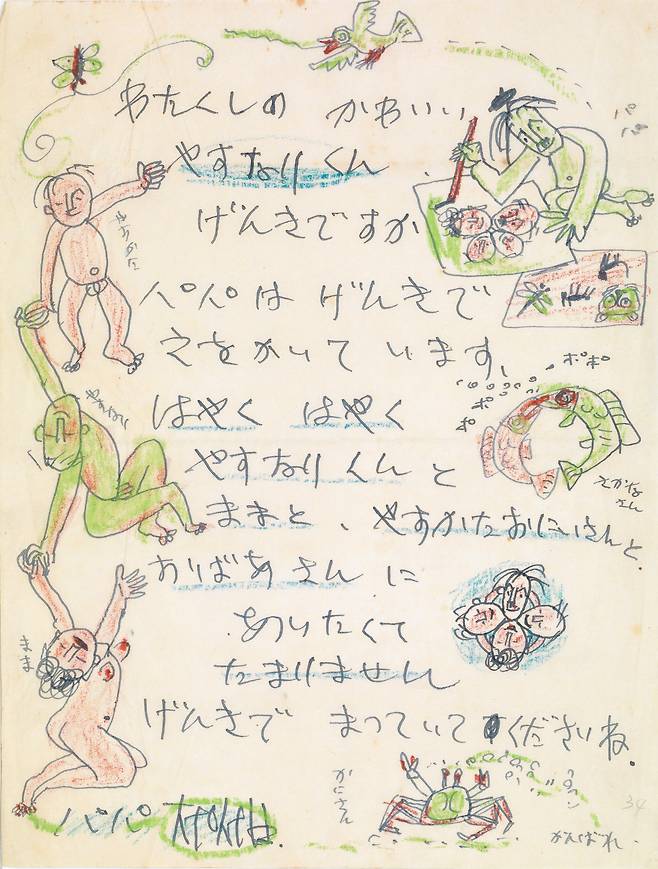 わたくしの かわいい
やすなりくん
げんきですか
パパは げんきで
えをかいています、
はやく はやく
やすなりくんと
ままと、やすかたおにいさんと.
おりばあさんに
あいたくて
たまりません
げんきで まっていてくださいね.
パパ
やすかた
まま
パパ
ポポ
ポ
ポ
さかな
さん
かにさん
がんばれ.
34